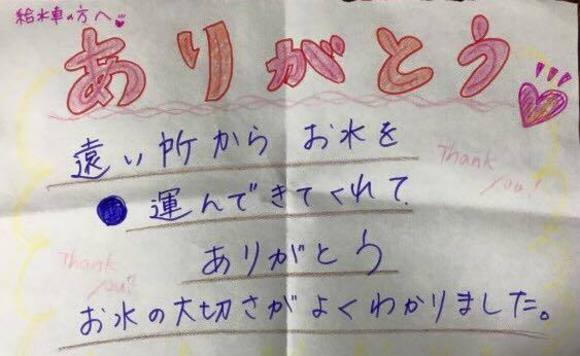 給水車の方へ
ありがとう
遠い所からお水を
Thank you!
運んできてくれて
ありがとう
Thank you!
お水の大切さがよくわかりました。